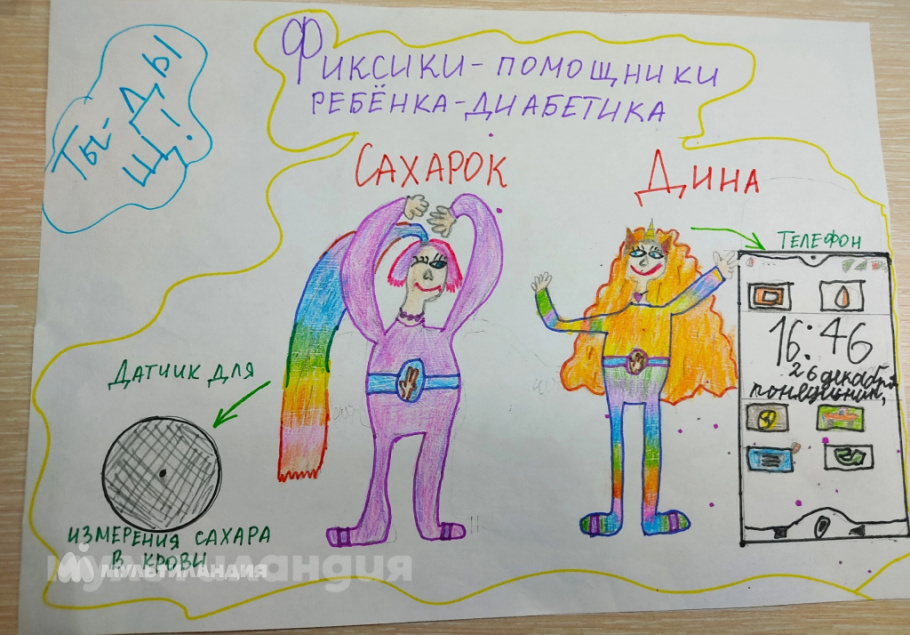 ТЫ-ДЫ
Щ!
ФИКСИКИ-ПОМОЩНИКИ
РЕБЁНКА-ДИАБЕТИКА
САХАРОК
ДИНА
ТЕЛЕФОН
16:46
26 декабря
понедельник,
ДАТЧИК ДЛЯ
ИЗМЕРЕНИЯ САХАРА
В КРОВИ
МУЛЬТИЛАНДИЯ